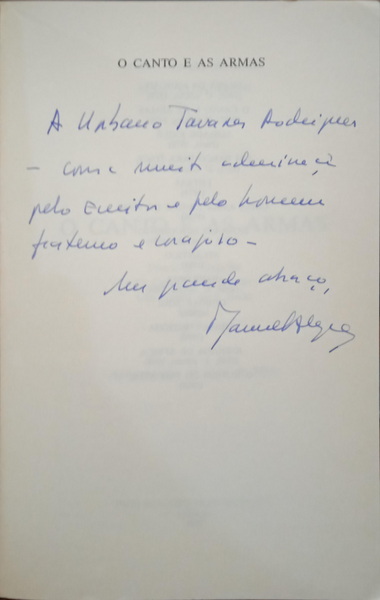 O CANTO E AS ARMAS
A Urbano Tavares Rodrigues
– com a muita admiração
pelo Escritor e pelo homem
fraterno e corajoso –
Um grande abraço,
Manuel Alegre